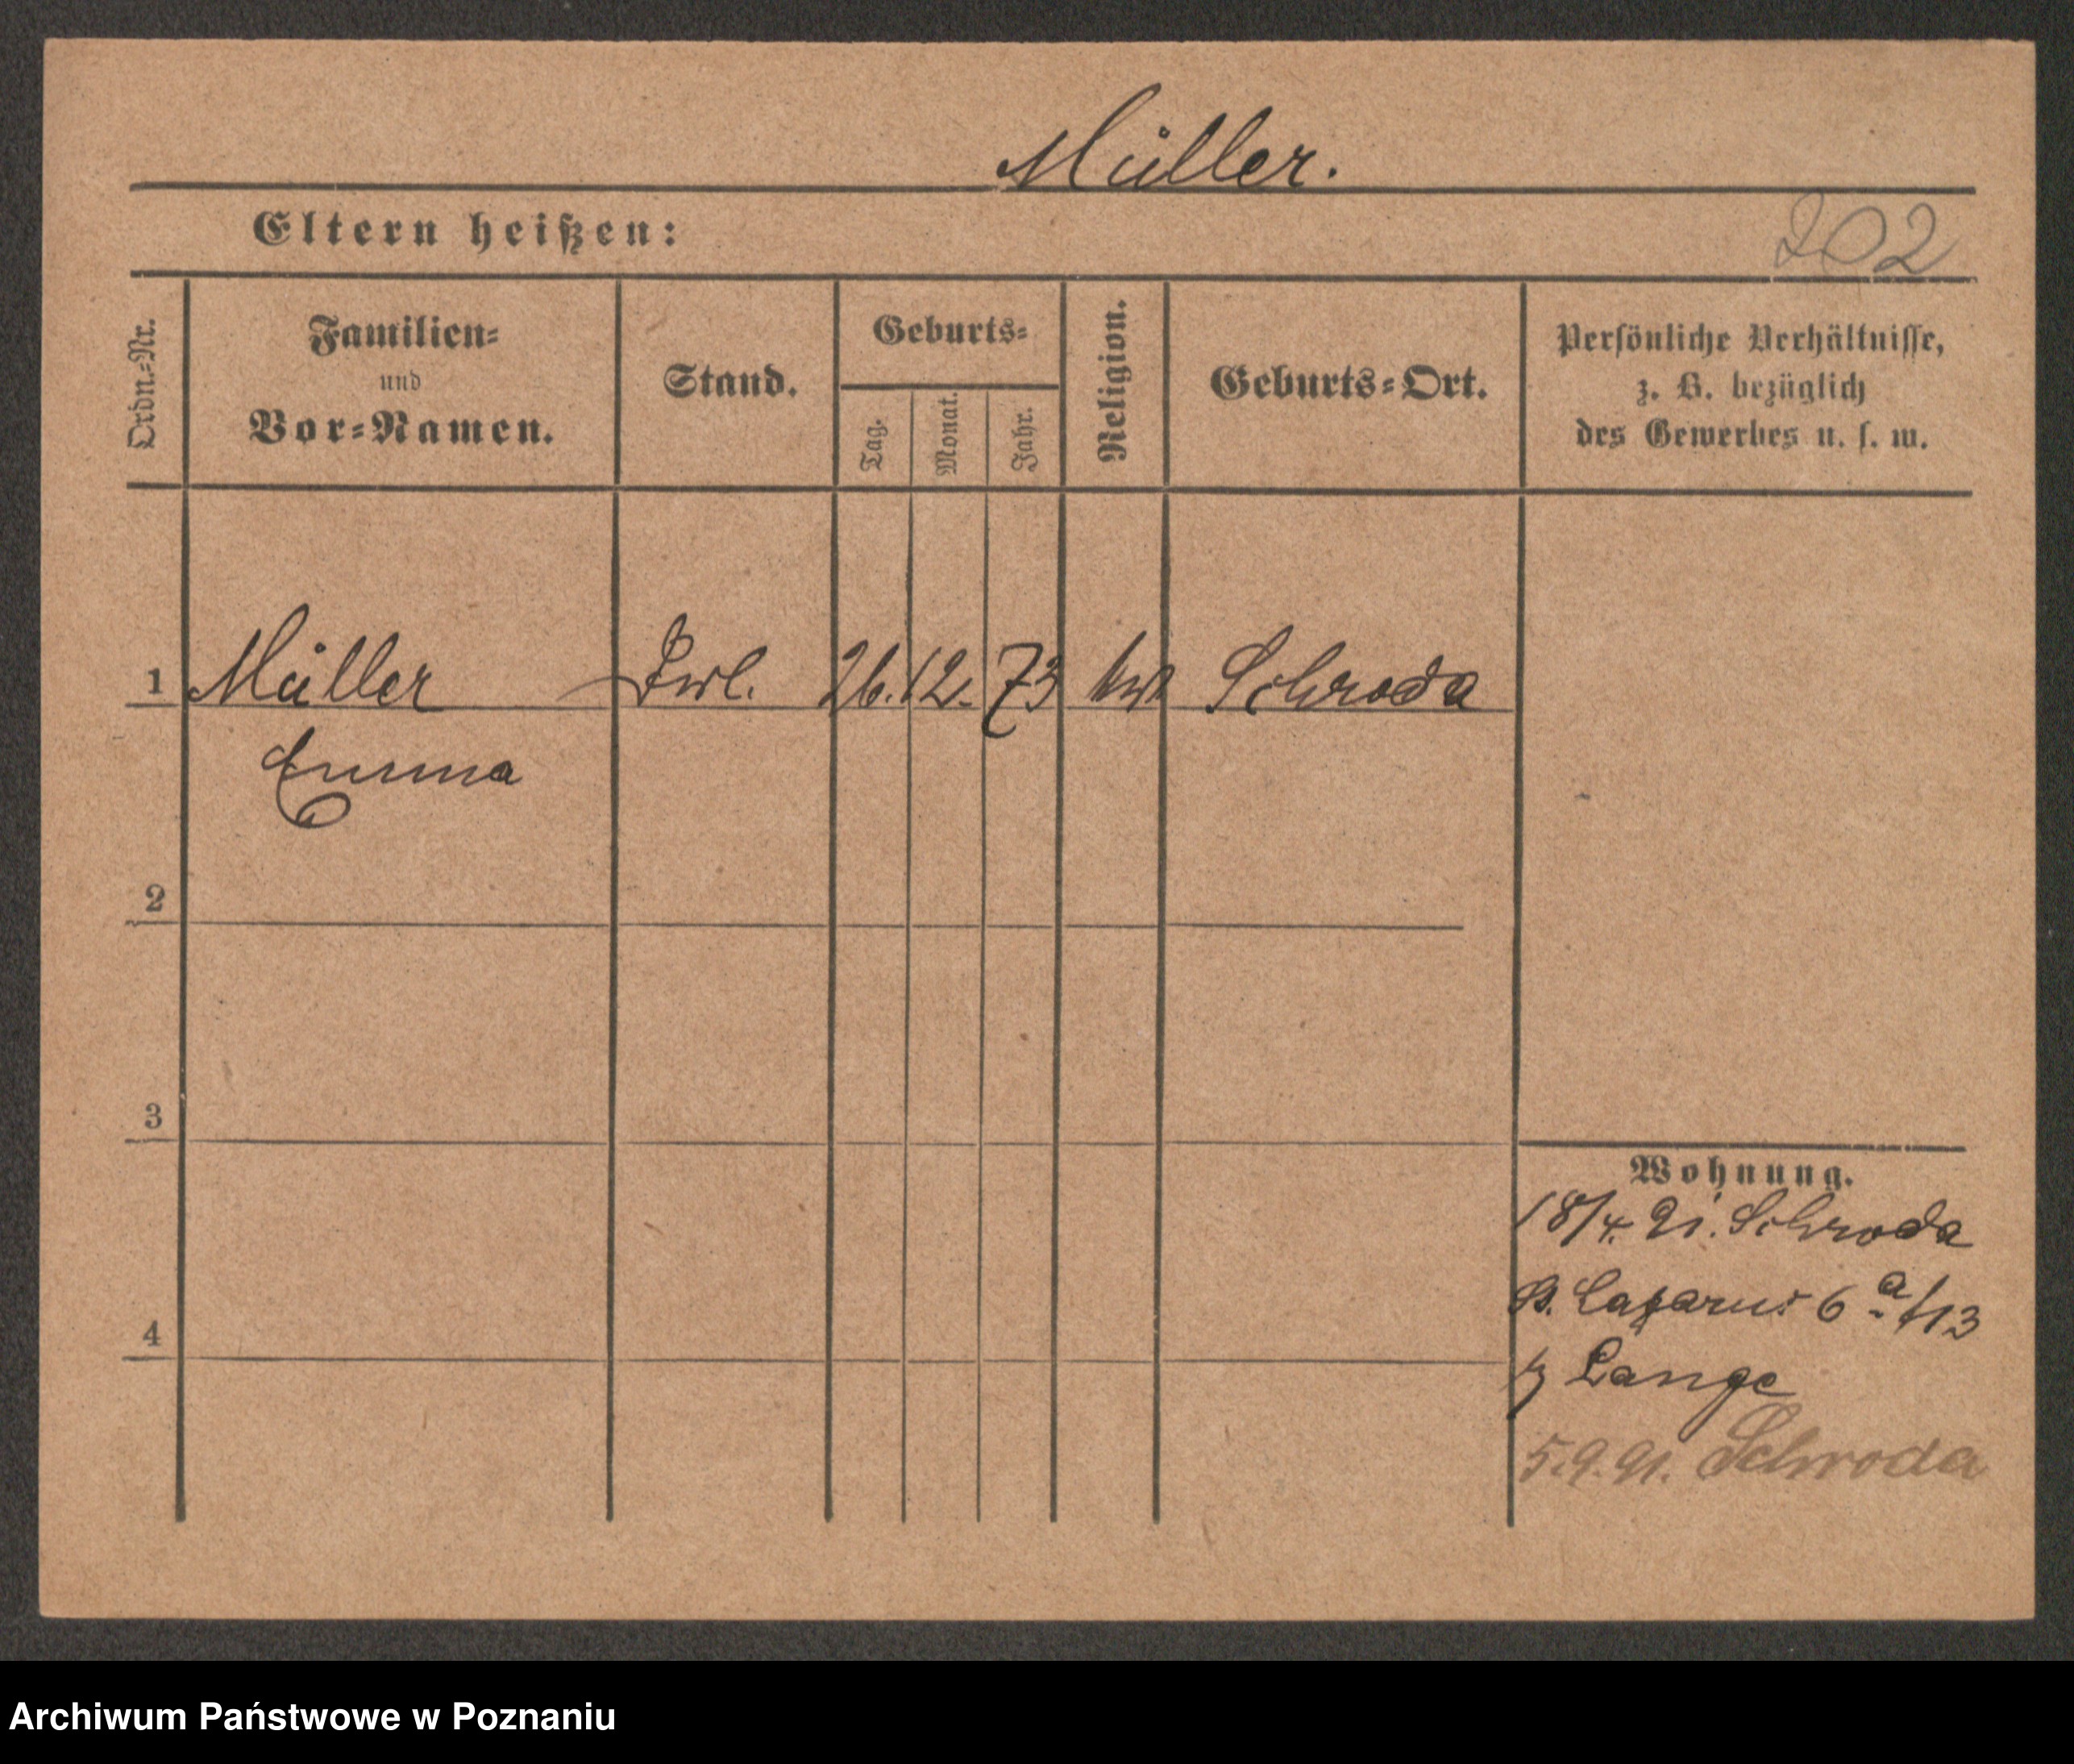 Müller.
Eltern heißen:
202
Ordn.-Nr.
Familien-
und
Vor-Namen.
Stand.
Geburts-
Tag.
Monat.
Jahr.
Religion.
Geburts-Ort.
Persönliche Verhältnisse,
z. B. bezüglich
des Gewerbes u. s. w.
1 Müller 26. 12. 73 Schroda
Emma
2
3
4
Wohnung.
18/4. 91. Schroda
St. Lazarus 6 a/113
Lange
5.9.91. Schroda
Archiwum Państwowe w Poznaniu